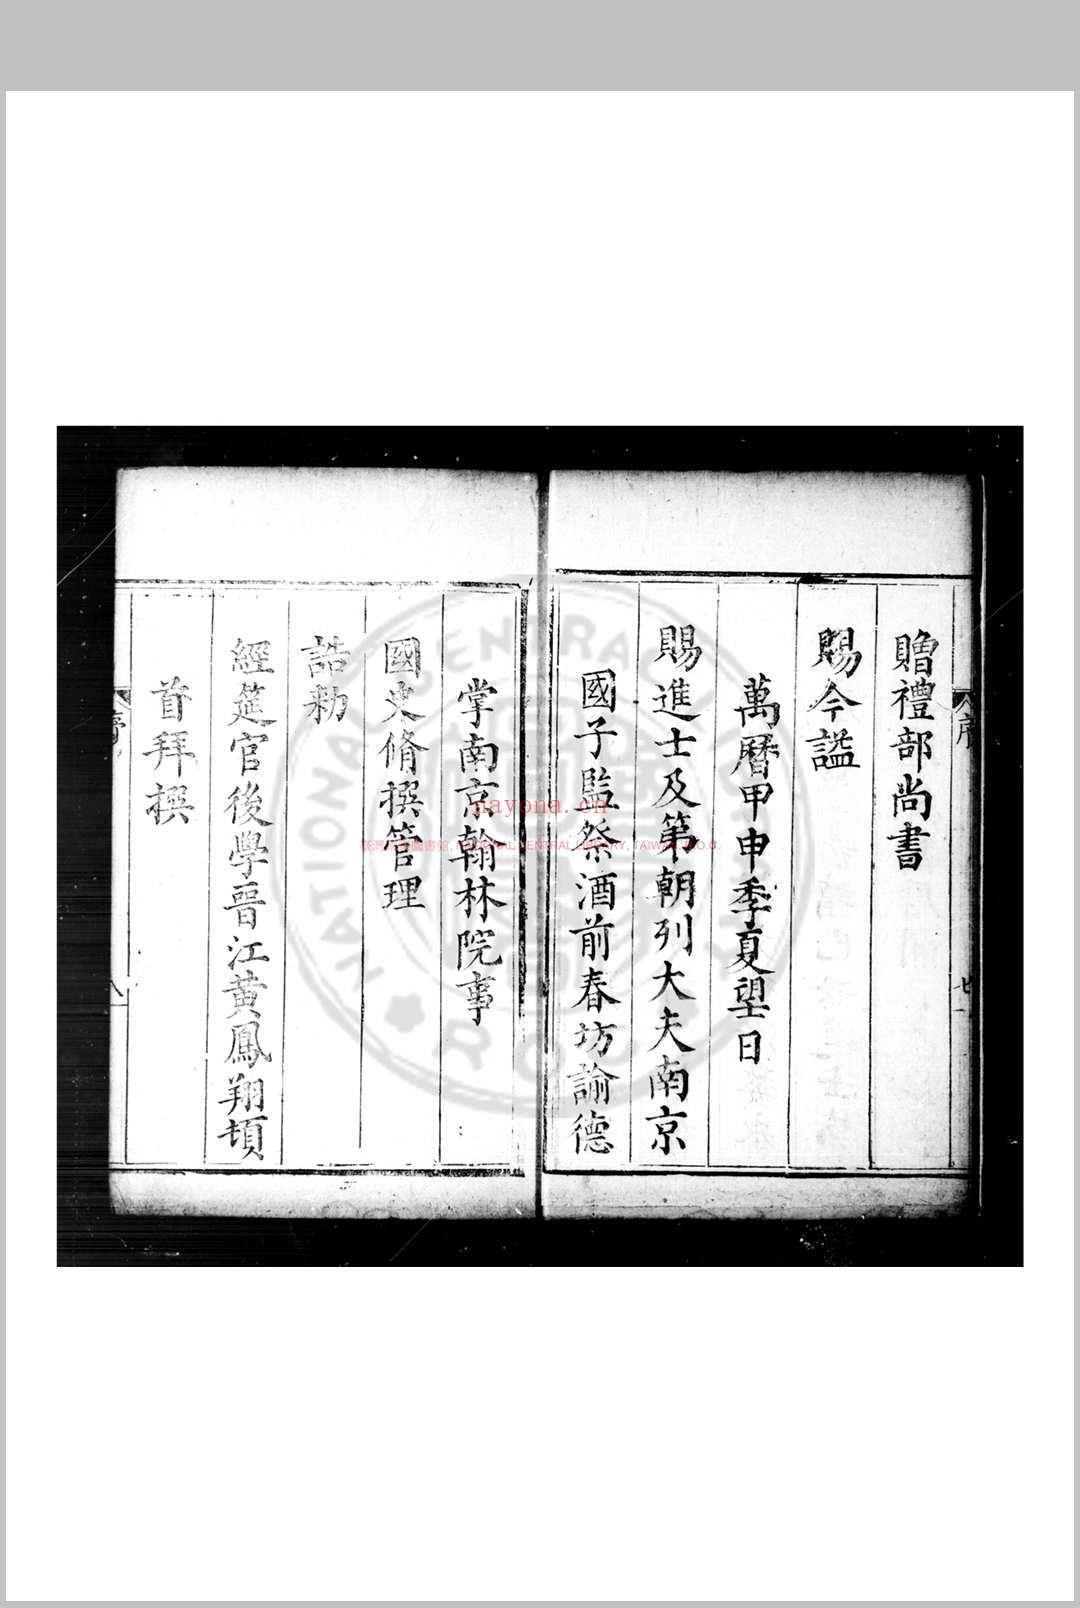 贈禮部尚書
賜今謚
萬曆甲申季夏望日
賜進士及第朝列大夫南京
國子監祭酒前春坊諭德
掌南京翰林院事
國史脩撰管理
誥勑
經筵官後學晉江黃鳳翔頓
首拜撰
序
七
八
nayona.cn
NATIONAL CENTRAL LIBRARY, TAIWAN, R.O.C.